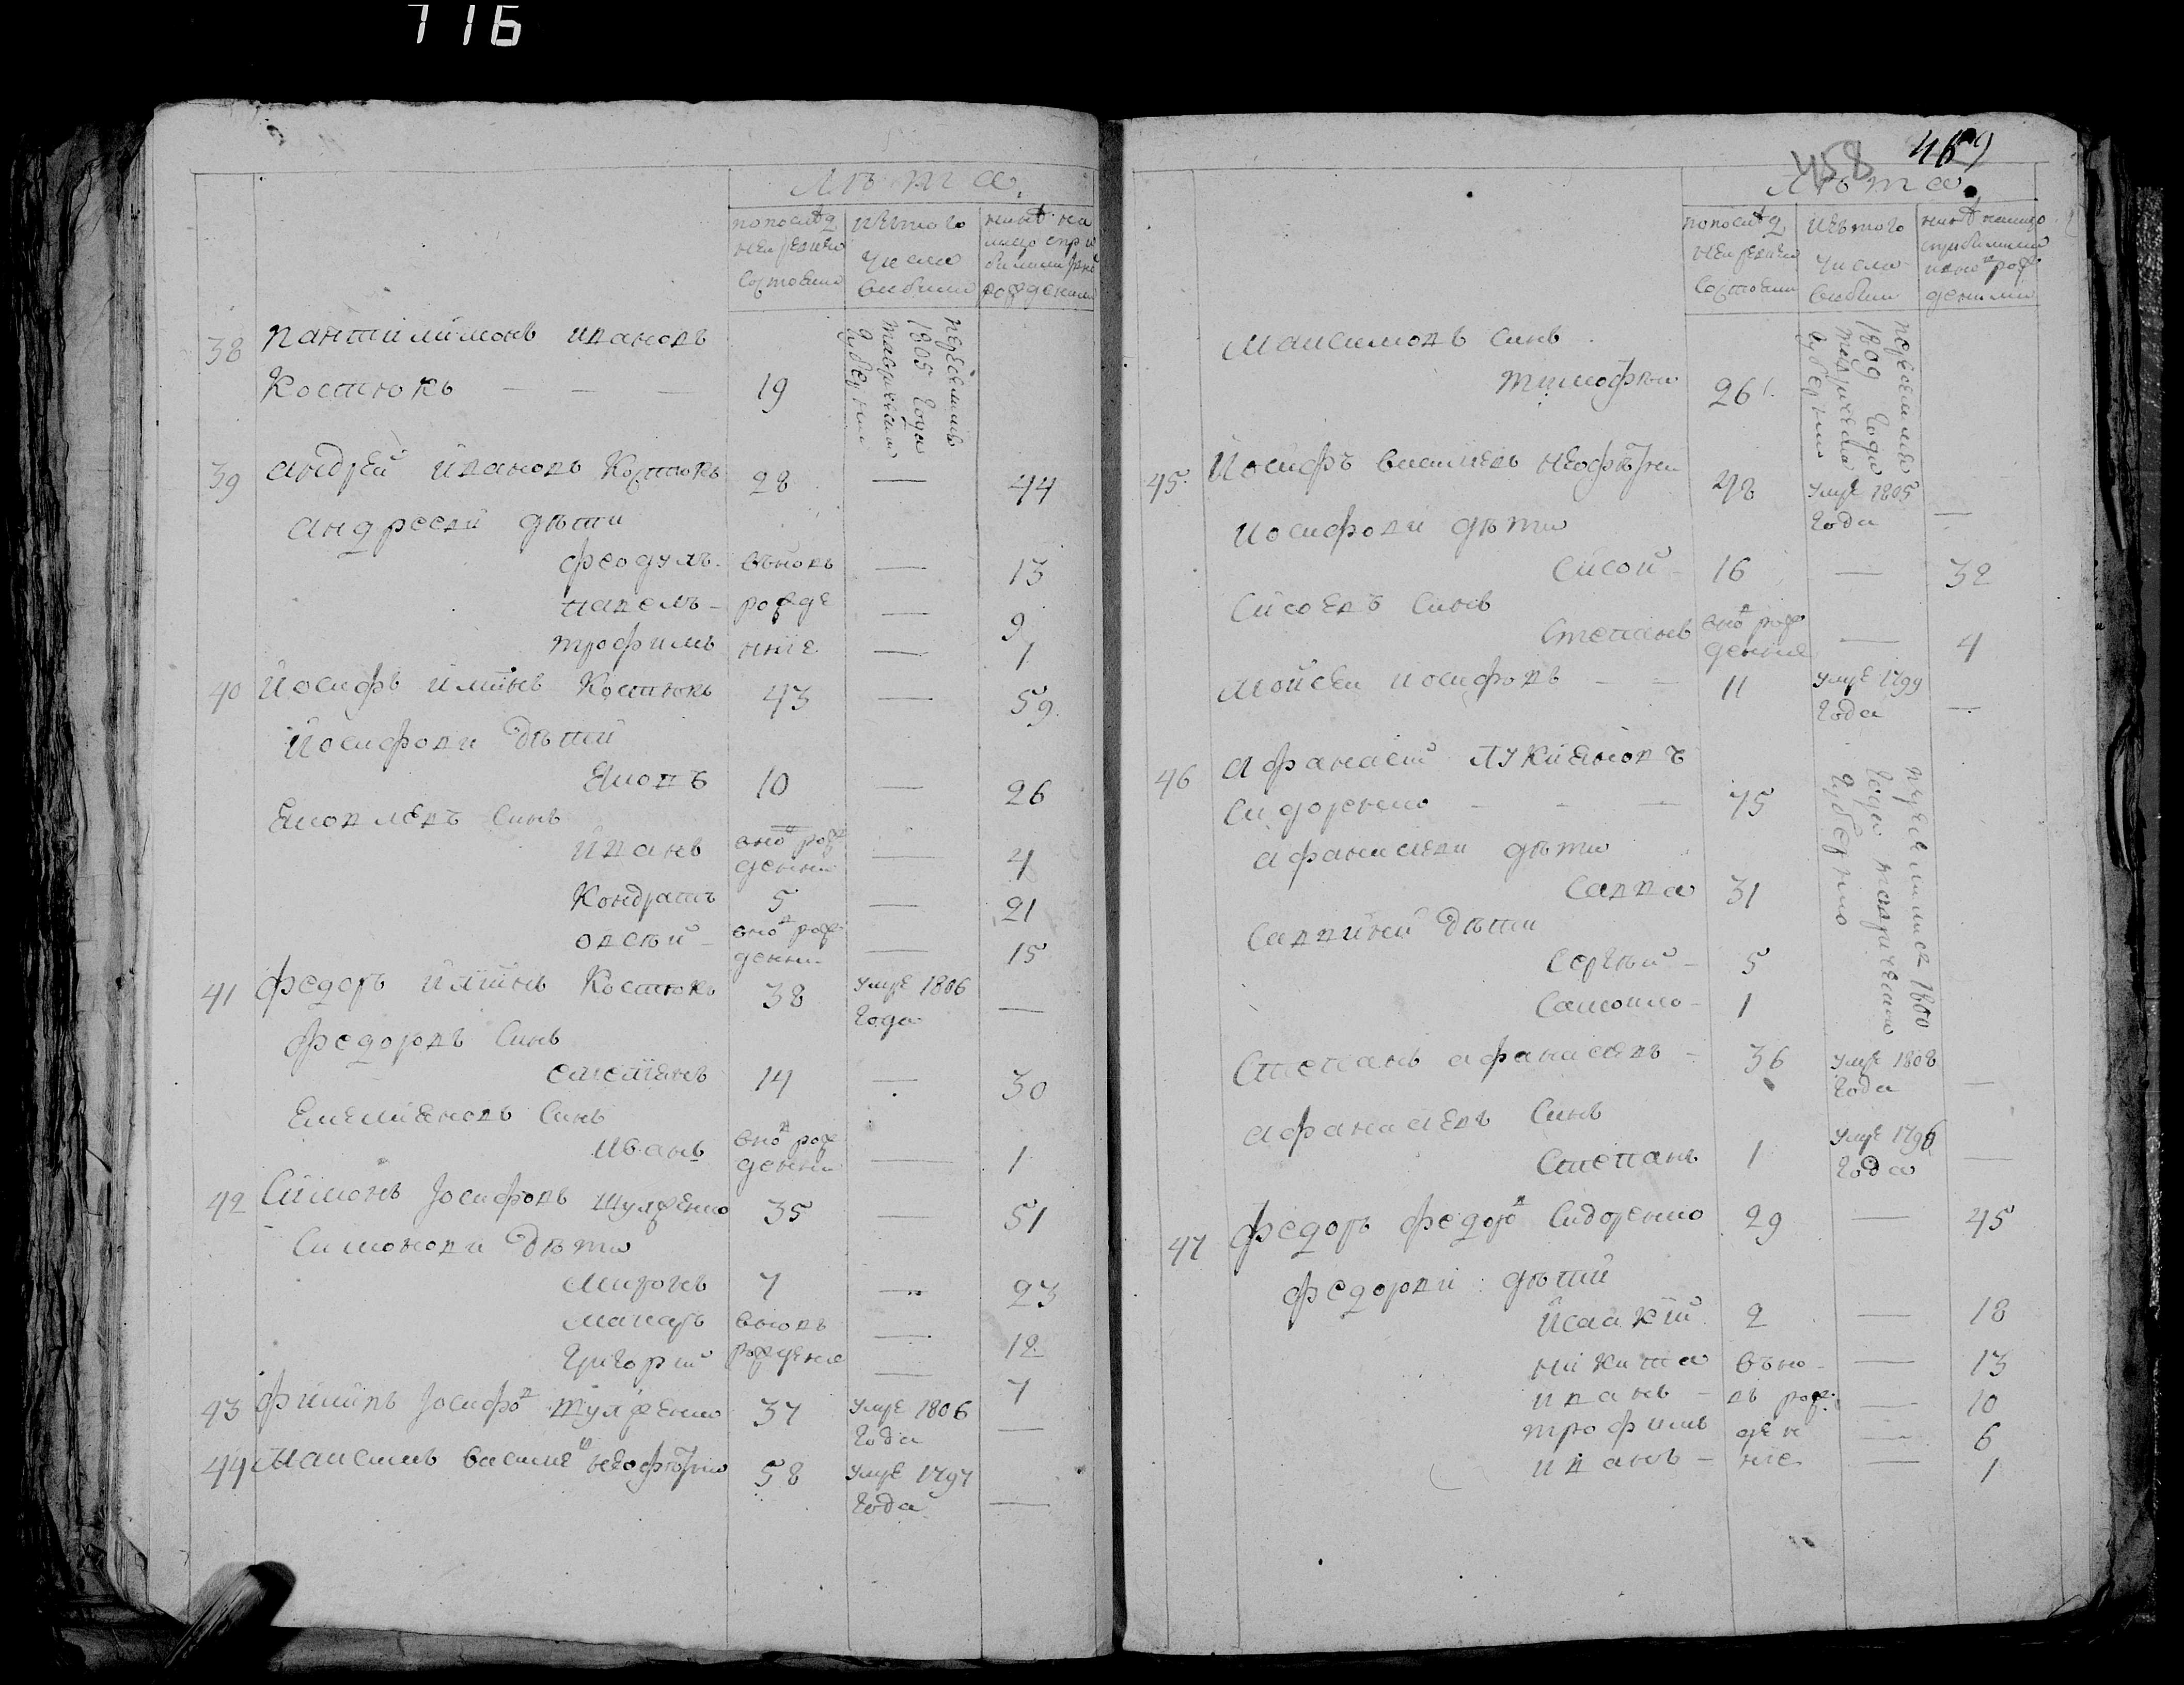 716
Лѣта.
по последней ревизіи состояли
изъ того числа выбыли
нынѣ на лицо с прибылыми и вновь рожденными
38 Пантилимонъ Ивановъ
Костюкъ — — — 19 переселились 1805 года таврической губерніи
39 Андрей Ивановъ Костюкъ 28 — 44
Андреевы дѣти
Феодулъ вьновь — 13
Павелъ рожде — 9
Трофимъ ніе — 1
40 Йосифъ Илїинъ Костюкъ 43 — 59
Йосифови дѣти
Яковъ 10 — 26
Яковлевъ синъ
Иванъ вновь рожденни — 4
Кондратъ 5 — 21
овсѣй вновь рожденни — 15
41 Федоръ Илїинъ Костюкъ 38 умре 1806 года —
Федоровъ синъ
емелїянъ 14 — 30
Емелияновъ синъ
Иванъ вновь рожденни — 1
42 Симонъ Јосифовъ Шулженко 35 — 51
Симонови дѣти
Миронъ 7 — 23
Макаръ вьновь — 12
Григорий рождение — 7
43 Филипъ Јосифов Шулженко 37 умре 1806 года —
44 Максимъ Василиев 58 умре 1797 года —
458 469
Лѣта.
по последней ревизіи состояли
изъ того числа выбыли
нынѣ на лицо с прибылыми и вновь рожденными
Максимовъ синъ
Тимофѣй 26 переселился 1809 года таврическа губерніи
45 Йосифъ Василиевъ 48 умре 1805 года —
Иосифови дѣти
Сисой 16 — 32
Сисоевъ синъ
Степанъ вновь рождение — 4
Мойсей иосифовъ — — 11 умре 1799 года —
46 Афанасий Лукияновъ
Сидоренко — — — 75 переселились 1800 года таврическою губернию
Афанасиеви дѣти
Савва 31
Саввиней дѣти
Сергѣй 5
Самойло 1
Степанъ афанасиевъ 36 умре 1808 года —
Афанасиевъ синъ
Степанъ 1 умре 1796 года —
47 Федоръ Федоров Сидоренко 29 — 45
Федорви дѣтий
Йсаакій 2 — 18
Никита вьно — 13
Иванъ въ рож — 10
Трофимъ де н — 6
Иванъ ніе — 1